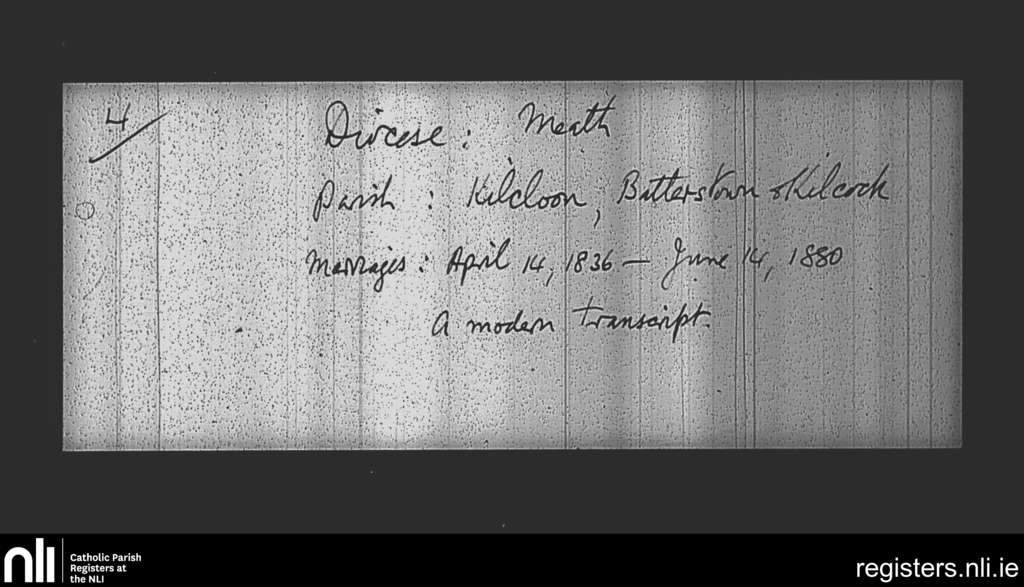 4/
Diocese: Meath
Parish: Kilcloon, Batterstown & Kilcock
Marriages: April 14, 1836 – June 14, 1880
A modern transcript.
nli
Catholic Parish
Registers at
the NLI
registers.nli.ie